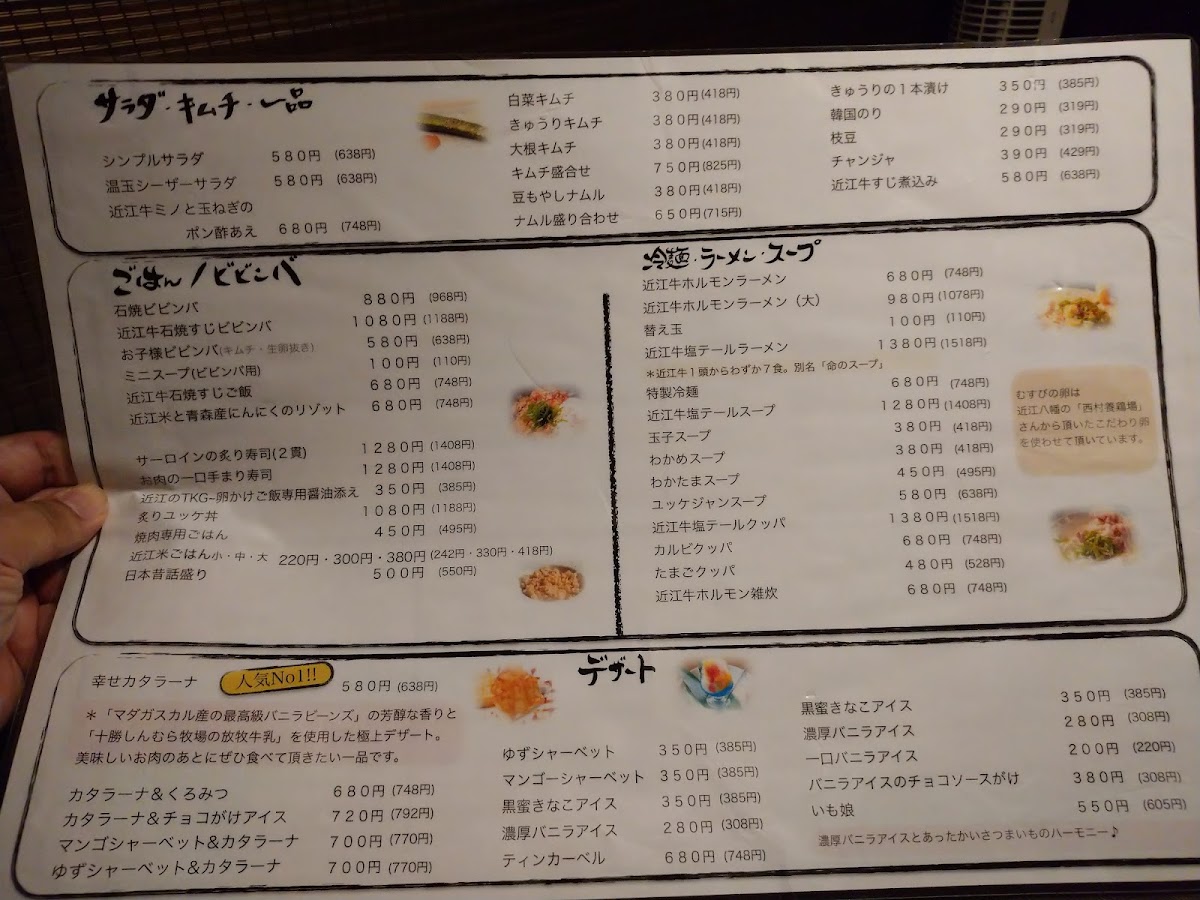 サラダ・キムチ・一品
シンプルサラダ 580円 (638円)
温玉シーザーサラダ 580円 (638円)
近江牛ミノと玉ねぎの
ポン酢あえ 680円 (748円)
白菜キムチ 380円(418円)
きゅうりキムチ 380円(418円)
大根キムチ 380円(418円)
キムチ盛合せ 750円(825円)
豆もやしナムル 380円(418円)
ナムル盛り合わせ 650円(715円)
きゅうりの1本漬け 350円 (385円)
韓国のり 290円 (319円)
枝豆 290円 (319円)
チャンジャ 390円 (429円)
近江牛すじ煮込み 580円 (638円)
ごはん/ビビンバ
石焼ビビンバ 880円 (968円)
近江牛石焼すじビビンバ 1080円 (1188円)
お子様ビビンバ(キムチ・生卵抜き) 580円 (638円)
ミニスープ(ビビンバ用) 100円 (110円)
近江牛石焼すじご飯 680円 (748円)
近江米と青森産にんにくのリゾット 680円 (748円)
サーロインの炙り寿司(2貫) 1280円 (1408円)
お肉の一口手まり寿司 1280円 (1408円)
近江のTKG~卵かけご飯専用醤油添え 350円 (385円)
炙りユッケ丼 1080円 (1188円)
焼肉専用ごはん 450円 (495円)
近江米ごはん小・中・大 220円・300円・380円(242円・330円・418円)
日本昔話盛り 500円 (550円)
冷麺・ラーメン・スープ
近江牛ホルモンラーメン 680円 (748円)
近江牛ホルモンラーメン(大) 980円(1078円)
替え玉 100円 (110円)
近江牛塩テールラーメン 1380円(1518円)
*近江牛1頭からわずか7食。別名「命のスープ」
特製冷麺 680円 (748円)
近江牛塩テールスープ 1280円(1408円)
玉子スープ 380円 (418円)
わかめスープ 380円 (418円)
わかたまスープ 450円 (495円)
ユッケジャンスープ 580円 (638円)
近江牛塩テールクッパ 1380円(1518円)
カルビクッパ 680円 (748円)
たまごクッパ 480円 (528円)
近江牛ホルモン雑炊 680円 (748円)
むすびの卵は
近江八幡の「西村養鶏場」
さんから頂いたこだわり卵
を使わせて頂いています。
デザート
幸せカタラーナ 人気No1!! 580円 (638円)
*「マダガスカル産の最高級バニラビーンズ」の芳醇な香りと
「十勝しんむら牧場の放牧牛乳」を使用した極上デザート。
美味しいお肉のあとにぜひ食べて頂きたい一品です。
カタラーナ&くろみつ 680円 (748円)
カタラーナ&チョコがけアイス 720円 (792円)
マンゴシャーベット&カタラーナ 700円 (770円)
ゆずシャーベット&カタラーナ 700円 (770円)
ゆずシャーベット 350円 (385円)
マンゴーシャーベット 350円 (385円)
黒蜜きなこアイス 350円 (385円)
濃厚バニラアイス 280円 (308円)
ティンカーベル 680円 (748円)
黒蜜きなこアイス 350円 (385円)
濃厚バニラアイス 280円 (308円)
一口バニラアイス 200円 (220円)
バニラアイスのチョコソースがけ 380円 (308円)
いも娘 550円 (605円)
濃厚バニラアイスとあったかいさつまいものハーモニー♪